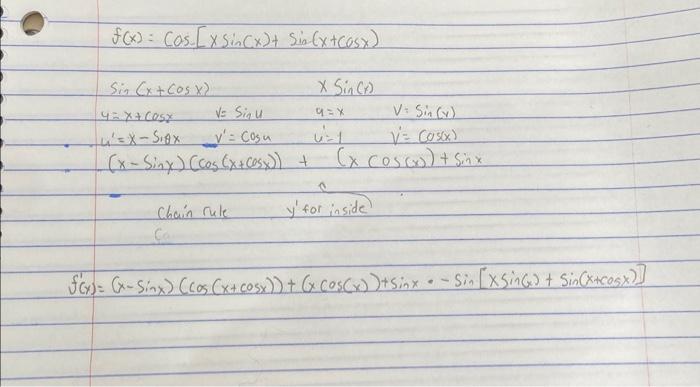 f(x) = Cos[x Sin(x) + Sin(x+cosx)
Sin (x + cos x) x Sin(x)
u = x + cosx v = Sin u u = x v = Sin(x)
u' = x - Sinx v' = Cosu u' = 1 v' = cos(x)
(x - Sinx)(cos(x+cosx)) + (x cos(x)) + Sinx
Chain rule y' for inside
Co
f'(x) = (x - Sinx)(cos(x+cosx)) + (x cos(x)) + Sinx • - Sin [x Sin(x) + Sin(x+cosx)]